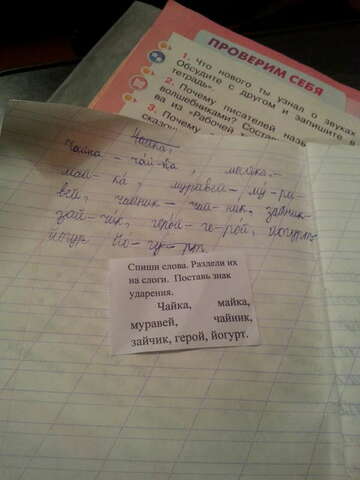 ПРОВЕРИМ СЕБЯ
1. Что нового ты узнал о звуках
Обсудите с другом и запишите в
тетрадь".
2. Почему писателей назв
волшебниками? Соста
ва из «Рабочей
3. Почему
сказо
Чайка,
Чайка – чай-ка, майка –
май-ка, муравей – му-ра-
вей, чайник – чай-ник, зайчик –
зай-чик, герой – ге-рой, йогурт
йогур йо-гу-рт.
Спиши слова. Раздели их
на слоги. Поставь знак
ударения.
Чайка, майка,
муравей, чайник,
зайчик, герой, йогурт.